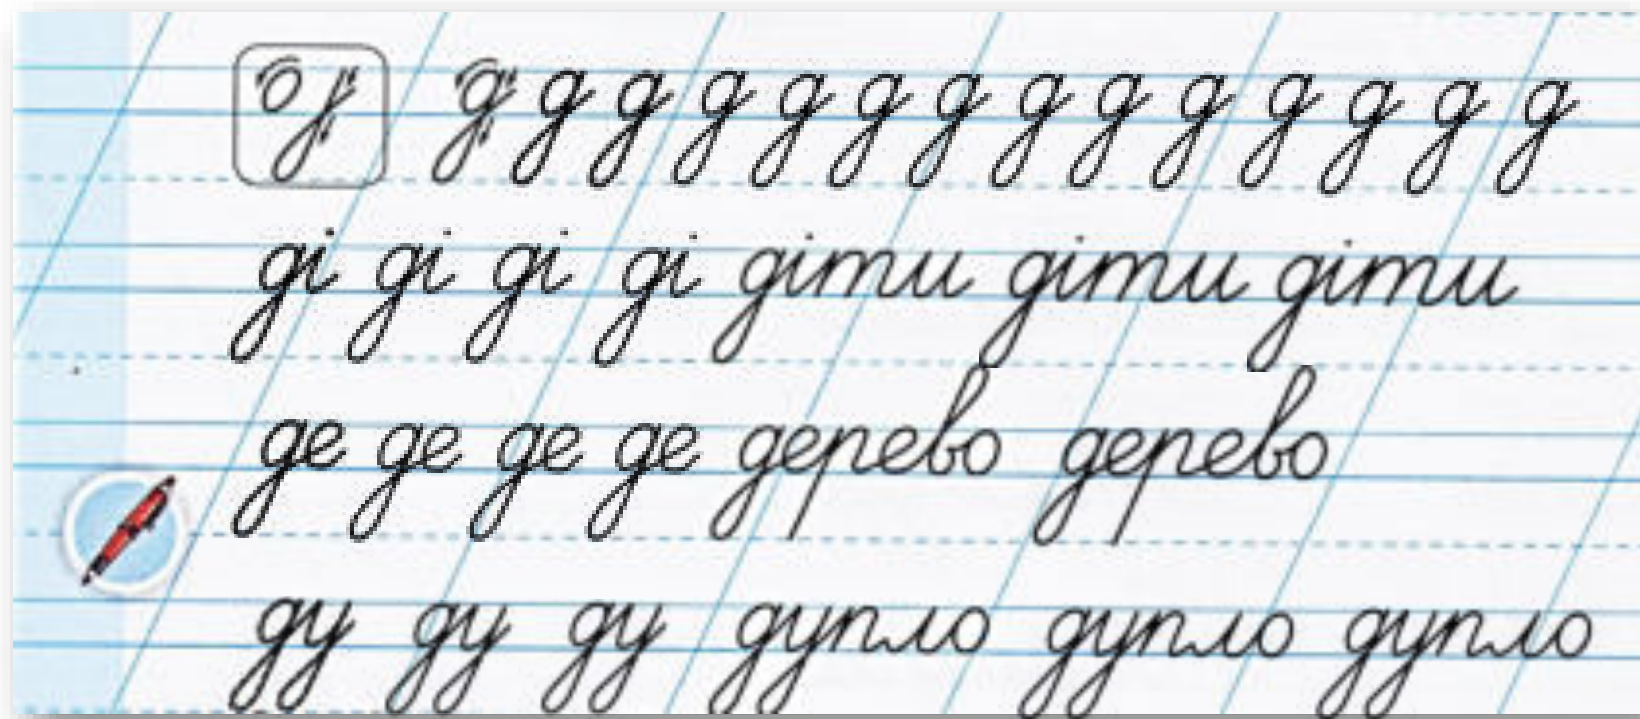 д д д д д д д д д д д д д д
ді ді ді ді діти діти діти
де де де де дерево дерево
ду ду ду дупло дупло дупло